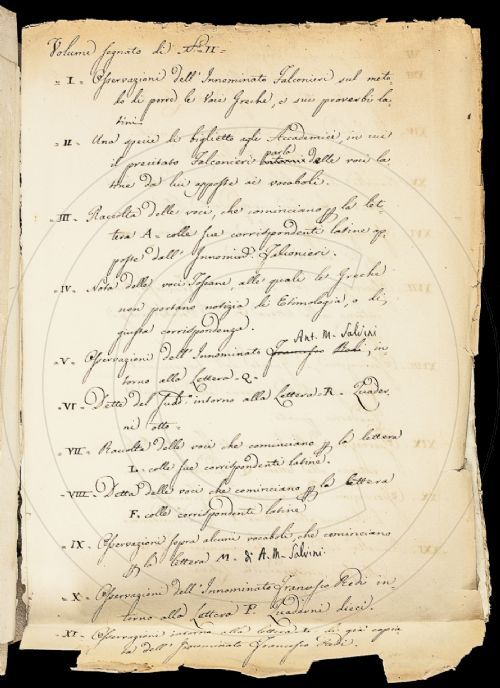 Volume segnato di N.° II =
= I = Osservazioni dell' Innominato Falconieri sul meto
do di porre le Voci Greche, e sui proverbi la
tini =
= II = Una specie di biglietto agli Accademici, in cui
il precitato Falconieri parla delle voci la
tine da lui apposte ai vocaboli.
= III = Raccolta delle voci, che cominciano p la let-
tera A = colle sue corrispondenti latine ap
poste dall' Innomin.° Falconieri.
= IV = Nota delle voci Toscane, alle quali le Greche
non portano notizia di Etimologia, o di
giusta corrispondenza.
Ant. M. Salvini
= V = Osservazioni dell' Innominato Francesco Redi, in
torno alla Lettera = Q =
= VI = Dette del Sud.° intorno alla Lettera = R = Quader
ni otto =
= VII = Raccolta delle voci che cominciano p la lettera
L = colle sue corrispondenti latine.
= VIII = Detta delle voci che cominciano p la lettera
F. colle corrispondenti latine
= IX = Osservazioni sopra alcuni vocaboli, che cominciano
p la lettera M = di A. M. Salvini
= X = Osservazioni dell' Innominato Francesco Redi in-
torno alla Lettera P. Quaderni dieci.
= XI = Osservazioni intorno alla lettera di già copia
ta dell' Innominato Francesco Redi.